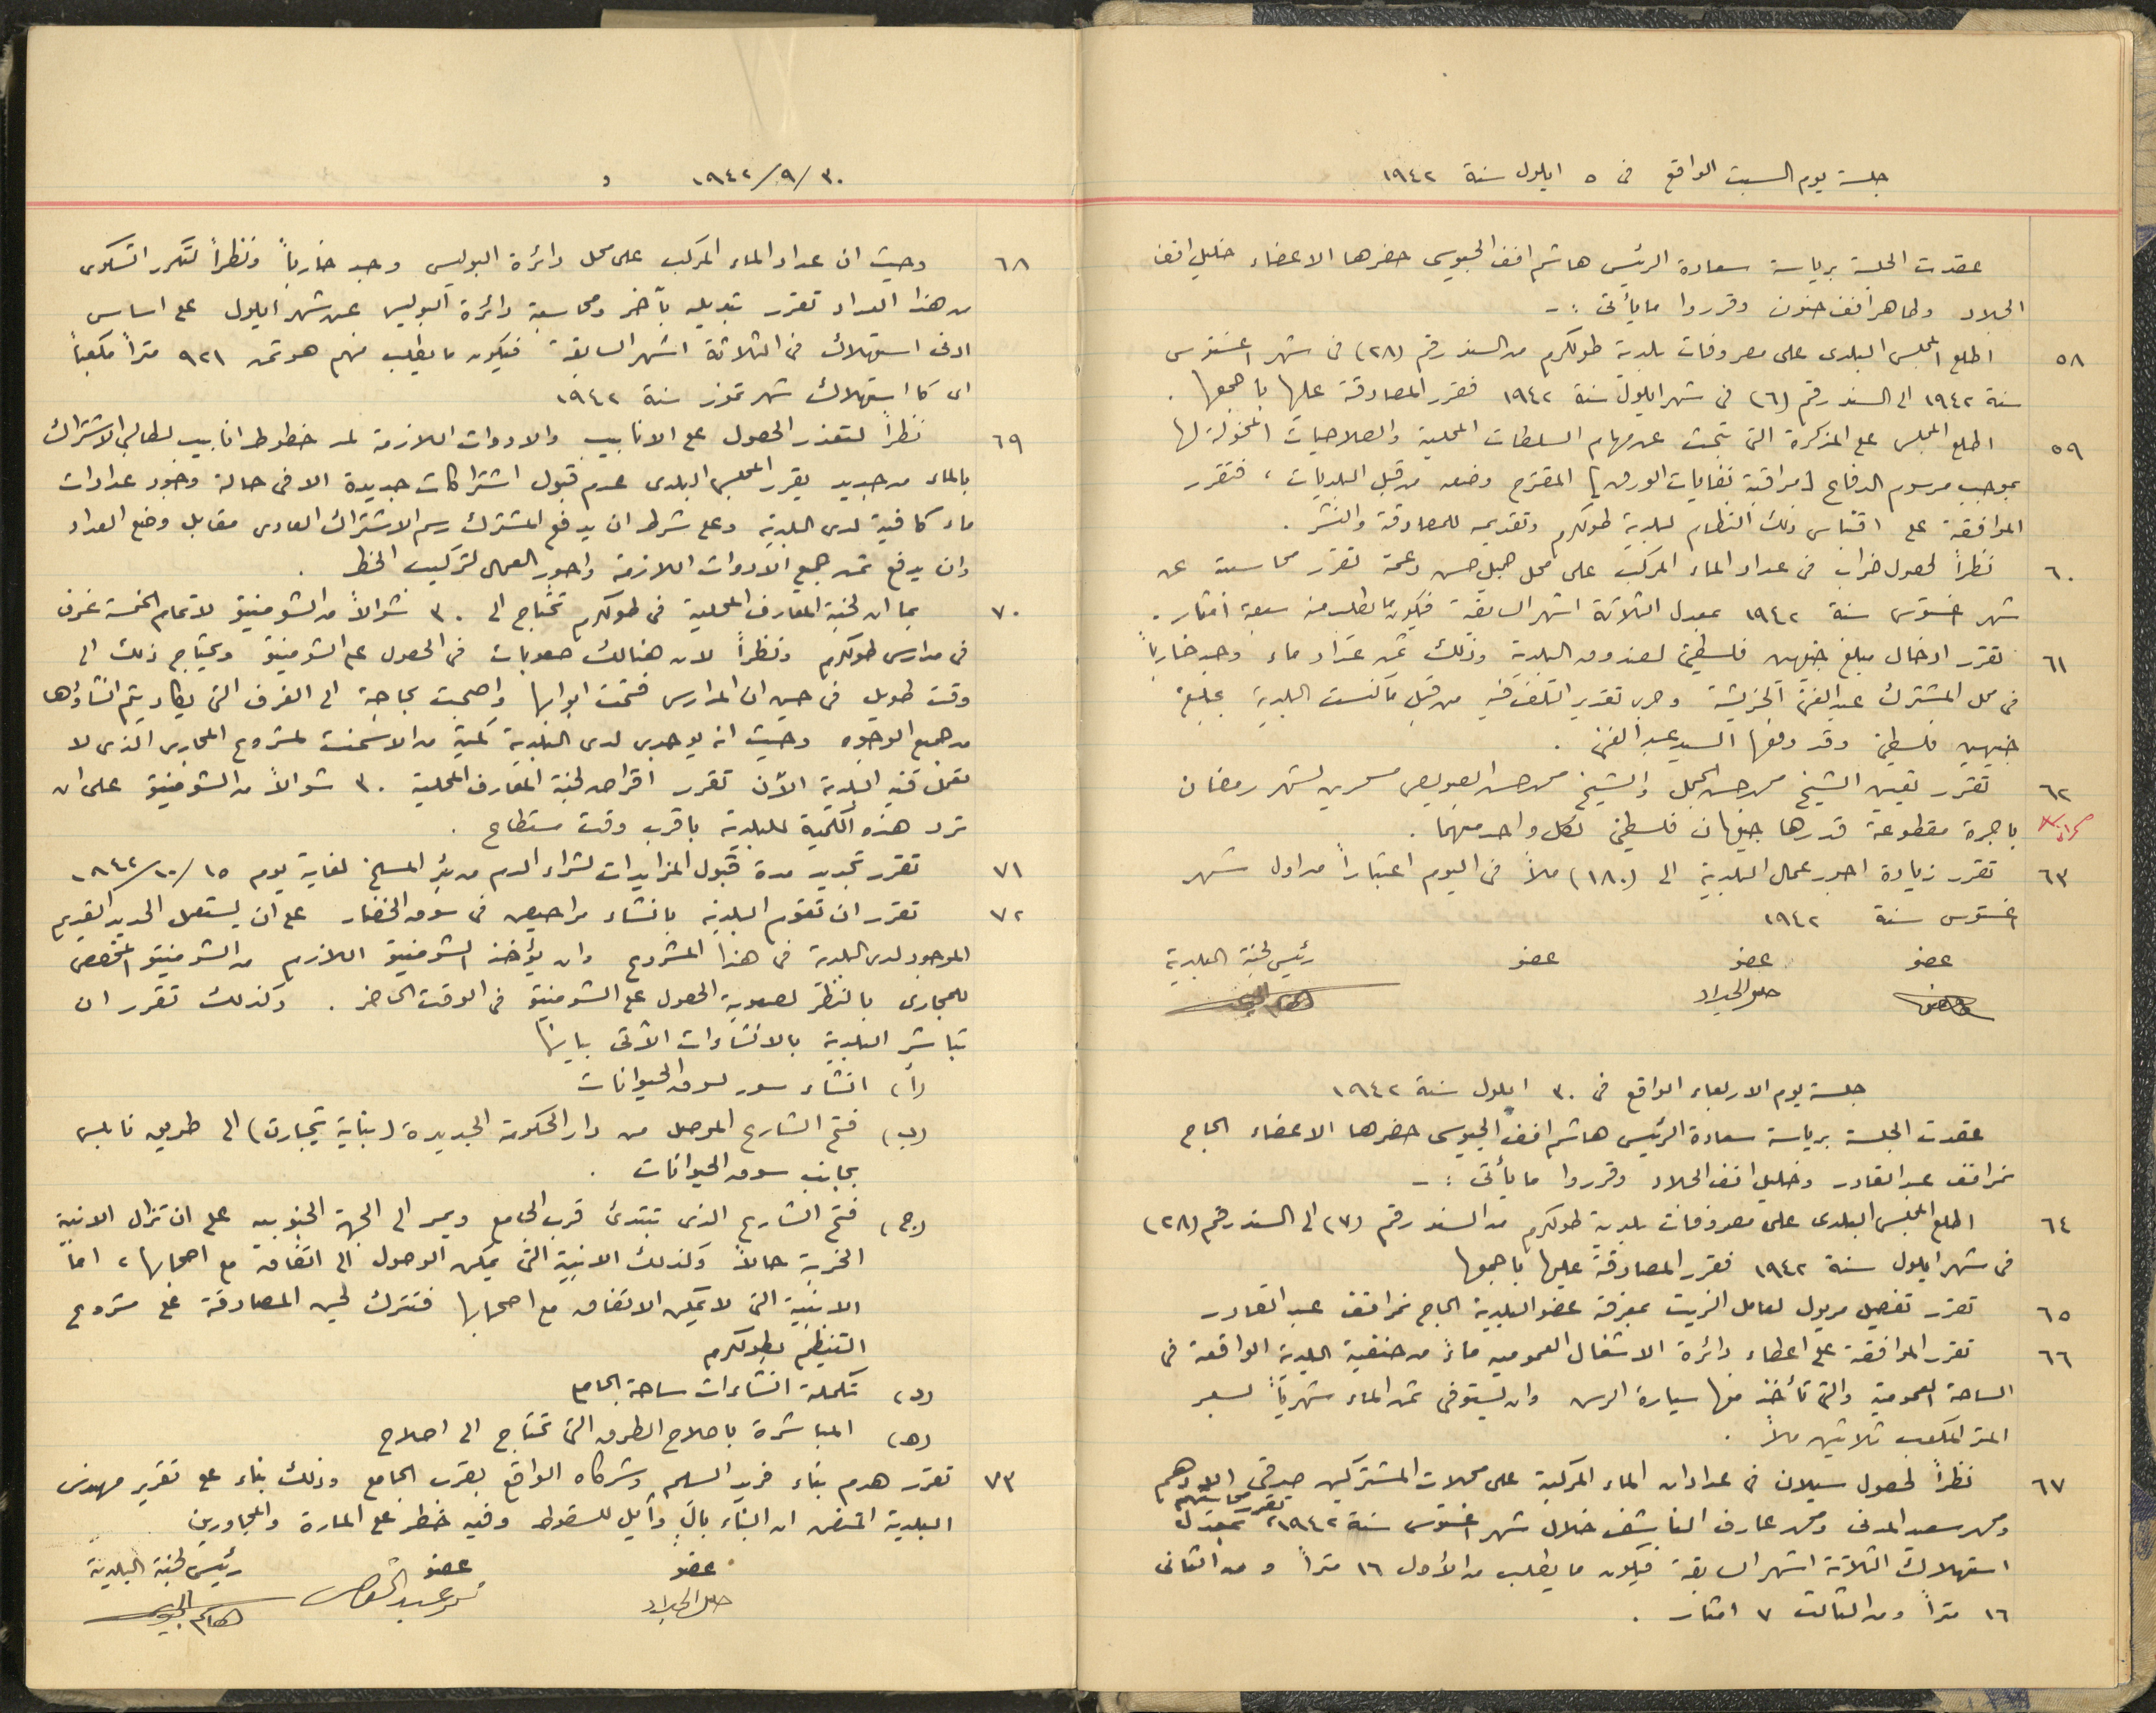 جلسة يوم السبت الواقع فى ٥ ايلول سنة ١٩٤٢
عقدت الجلسة برياسة سعادة الرئيس هاشم افند الجيوسى حضرها الاعضاء خليل افند
الجلاد وطاهر افند حنون وقرروا مايأتى :-
٥٨ اطلع المجلس البلدى على مصروفات بلدية طولكرم من السند رقم (٢٨) فى شهر اغسترس
سنة ١٩٤٢ الى السند رقم (٢٦) فى شهر ايلول سنة ١٩٤٢ فقرر المصادقة عليها باجمعها .
٥٩ اطلع المجلس على المذكرة التى تبحث عن مهام السلطات المحلية والصلاحيات المخولة لها
بموجب مرسوم الدفاع [مراقبة نفايات الورق] المقترح وضعه من قبل البلديات ، فتقرر
الموافقة على اقتباس ذلك النظام لبلدية طولكرم وتقديمه للمصادقة والنشر .
٦٠ نظراً لحصول خراب فى عداد الماء المركب على محل جميل حسن دعمة تقرر محاسبته عن
شهر اغستوس سنة ١٩٤٢ بمعدل الثلاثة اشهر السابقة فيكون ما يطلب منه سبعة امتار .
٦١ تقرر ادخال مبلغ جنيهين فلسطينى لصندوق البلدية وذلك ثمن عداد ماء وجد خارباً
فى محل المشترك عبد الغنى الخريشة وجرى تقدير التلف فيه من قبل ماكنست البلدية بمبلغ
جنيهين فلسطينى وقد دفعها السيد عبد الغنى .
٦٢ تقرر تعيين الشيخ محمد حسن الجمل والشيخ محمد حسن العويص مسحرين لشهر رمضان
باجرة مقطوعة قدرها جنيهان فلسطينى لكل واحد منهما .
٦٣ تقرر زيادة اجور عمال البلدية الى (١٨٠) ملاً فى اليوم اعتباراً من اول شهر
اغستوس سنة ١٩٤٢
عضو عضو عضو رئيس لجنة البلدية
خليل الجلاد
جلسة يوم الاربعاء الواقع فى ٣٠ ايلول سنة ١٩٤٢
عقدت الجلسة برياسة سعادة الرئيس هاشم افند الجيوسى حضرها الاعضاء الحاج
نمر افند عبد القادر وخليل افند الجلاد وقرروا ما يأتى :-
٦٤ اطلع المجلس البلدى على مصروفات بلدية طولكرم من السند رقم (٢٧) الى السند رقم (٢٨)
فى شهر ايلول سنة ١٩٤٢ فقرر المصادقة عليها باجمعها
٦٥ تقرر تفصيل مريول لعامل الزيت بمعرفة عضو البلدية الحاج نمر افند عبد القادر
٦٦ تقرر الموافقة على اعطاء دائرة الاشغال العموميه ماءً من حنفية البلدية الواقعة فى
الساحة العمومية والتى تأخذ منها سيارة الرس وان يستوفى ثمن الماء شهرياً بسعر
المتر المكعب ثلاثين ملاً .
٦٧ نظراً لحصول سيلان فى عدادان الماء المركبة على محلات المشتركين صدقى اللادهم
ومحمد سعيد المدنى ومحمد عارف الناشف خلال شهر اغستوس سنة ١٩٤٢، تقرر محاسبتهم بمعدل
استهلاك الثلاثة اشهر السابقة فيكون ما يطلب من الأول ١٦ متراً ومن الثانى
١٦ متراً ومن الثالث ٧ امتار .
٣٠/٩/١٩٤٢
٦٨ وحيث ان عداد الماء المركب على محل دائرة البوليس وجد خارباً ونظراً لتكرر الشكوى
من هذا العداد تقرر تبديله بآخر ومحاسبة دائرة البوليس عن شهر ايلول على اساس
ادنى استهلاك فى الثلاثة اشهر السابقة فيكون ما يطلب منهم هو ثمن ٩٢١ متراً مكعباً
اى كا استهلاك شهر تموز سنة ١٩٤٢
٦٩ نظراً لتعذر الحصول على الانابيب والادوات اللازمة لمد خطوط انابيب لطالبي الاشتراك
بالماء من جديد يقرر المجلس البلدى عدم قبول اشتراكات جديدة الا فى حالة وجود عدادات
ماء كافية لدى البلدية وعلى شرط ان يدفع المشترك رسم الاشتراك العادى مقابل وضع العداد
وان يدفع ثمن جميع الادوات اللازمة واجور العمال لتركيب الخط .
٧٠ بما ان لجنة المعارف المحلية فى طولكرم تحتاج الى ٣٠ شوالاً من الشومنيتو لاتمام الخمسة غرف
فى مدارس طولكرم ونظراً لان هنالك صعوبات فى الحصول على الشومنيتو ويحتاج ذلك الى
وقت طويل فى حين ان المدارس فتحت ابوابها واصبحت بحاجة الى الغرف التى يكاد يتم انشاؤها
من جميع الوجوه وحيث انه يوجد لدى البلدية كمية من الاسمنت لمشروع المجارى الذى لا
تعمل فيه البلدية الآن تقرر اقراض لجنة المعارف المحلية ٣٠ شوالاً من الشومنيتو على ان
ترد هذه الكمية للبلدية باقرب وقت مستطاع .
٧١ تقرر تجديد مدة قبول المزايدات لشراء الدم من بئر المسلخ لغاية يوم ١٥/١٠/١٩٤٢
٧٢ تقرر ان تقوم البلدية بانشاء مراحيض فى سوق الخضار على ان يستعمل الحديد القديم
الموجود لدى البلدية فى هذا المشروع وان يؤخذ الشومنيتو اللازم من الشومنيتو المخصص
للمجارى بالنظر لصعوبة الحصول على الشومنيتو فى الوقت الحاضر . وكذلك تقرر ان
تباشر البلدية بالانشاءات الآتى بيانها
(أ) انشاء سور لسوق الحيوانات
(ب) فتح الشارع الموصل من دار الحكومة الجديدة (بناية تيجارت) الى طريق نابلس
بجانب سوق الحيوانات .
(ج) فتح الشارع الذى تبتدئ قرب الجامع ويمر الى الجهة الجنوبيه على ان تزال الابنية
الخربة حالاً وكذلك الابنية التى يمكن الوصول الى اتفاق مع اصحابها ، اما
الابنية التى لا يمكن الاتفاق مع اصحابها فتترك لحين المصادقة على مشروع
التنظيم بطولكرم
(د) تكملة انشاءات ساحة الجامع
(هـ) المباشرة باصلاح الطرق التى تحتاج الى اصلاح
٧٣ تقرر هدم بناء فريد السلم وشركاه الواقع بقرب الجامع وذلك بناء على تقرير مهندس
البلدية المتضمن ان البناء بالٍ وآيل للسقوط وفيه خطر على المارة والمجاورين
عضو عضو رئيس لجنة البلدية
خليل الجلاد نمر عبد القادر هاشم الجيوسى